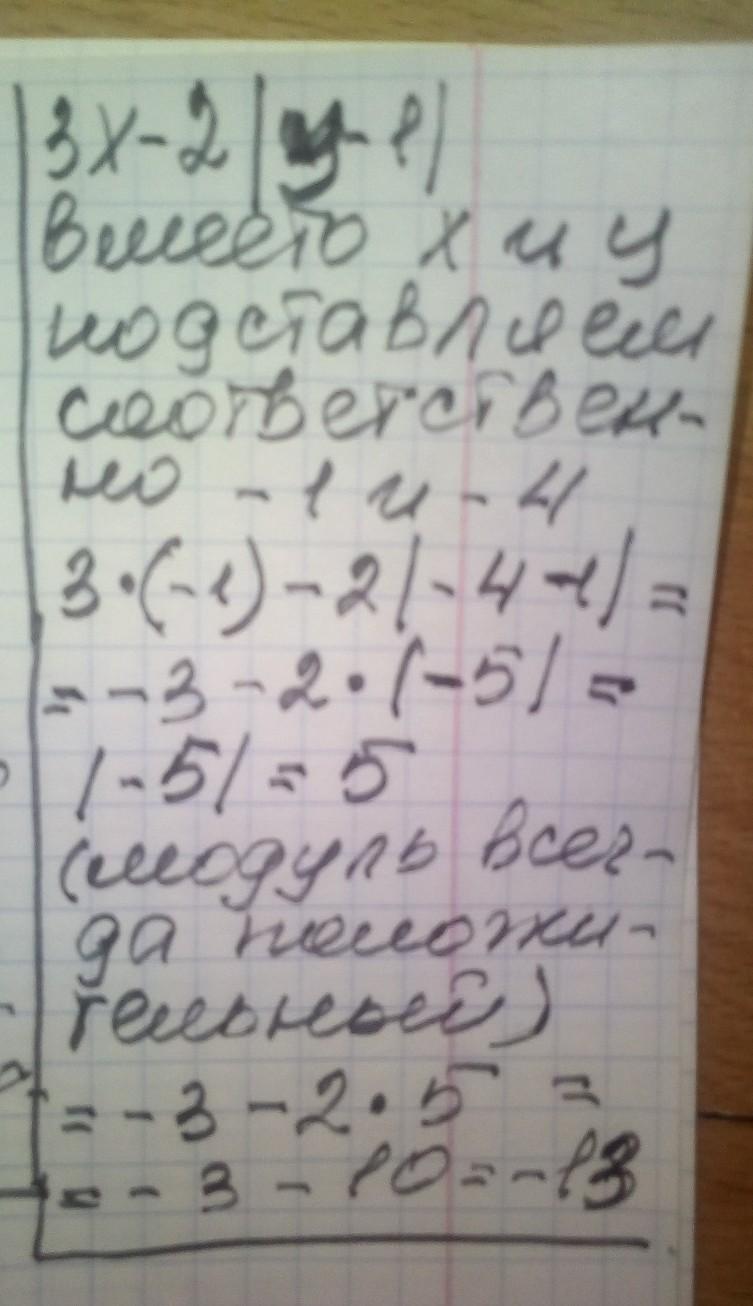 3х-2|y-1|
вместо х и у
подставляем
соответствен-
но -1 и -4
3·(-1)-2|-4-1|=
=-3-2·|-5|=
|-5|=5
(модуль всег-
да положи-
тельный)
=-3-2·5=
=-3-10=-13